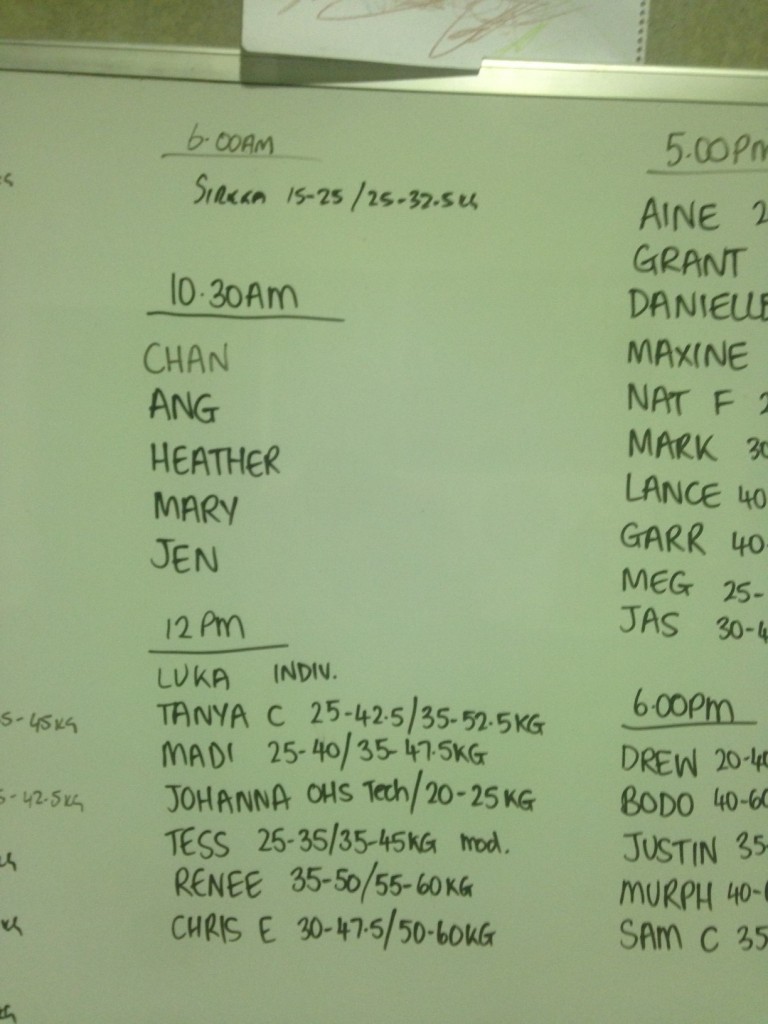 6.00AM
SIRKKA 15-25/25-32.5KG
10.30AM
CHAN
ANG
HEATHER
MARY
JEN
12PM
LUKA INDIV.
TANYA C 25-42.5/35-52.5KG
MADI 25-40/35-47.5KG
JOHANNA OHS Tech/20-25KG
TESS 25-35/35-45KG mod.
RENEE 35-50/55-60KG
CHRIS E 30-47.5/50-60KG
5.00PM
AINE 2
GRANT
DANIELLE
MAXINE
NAT F 2
MARK 30
LANCE 40
GARR 40-
MEG 25-
JAS 30-4
6.00PM
DREW 20-40
BODO 40-60
JUSTIN 35-
MURPH 40-6
SAM C 35
5-45KG
5-42.5KG